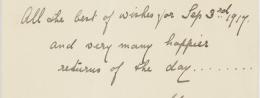 All the best of wishes for Sep 3rd 1917.
and very many happier
returns of the day........